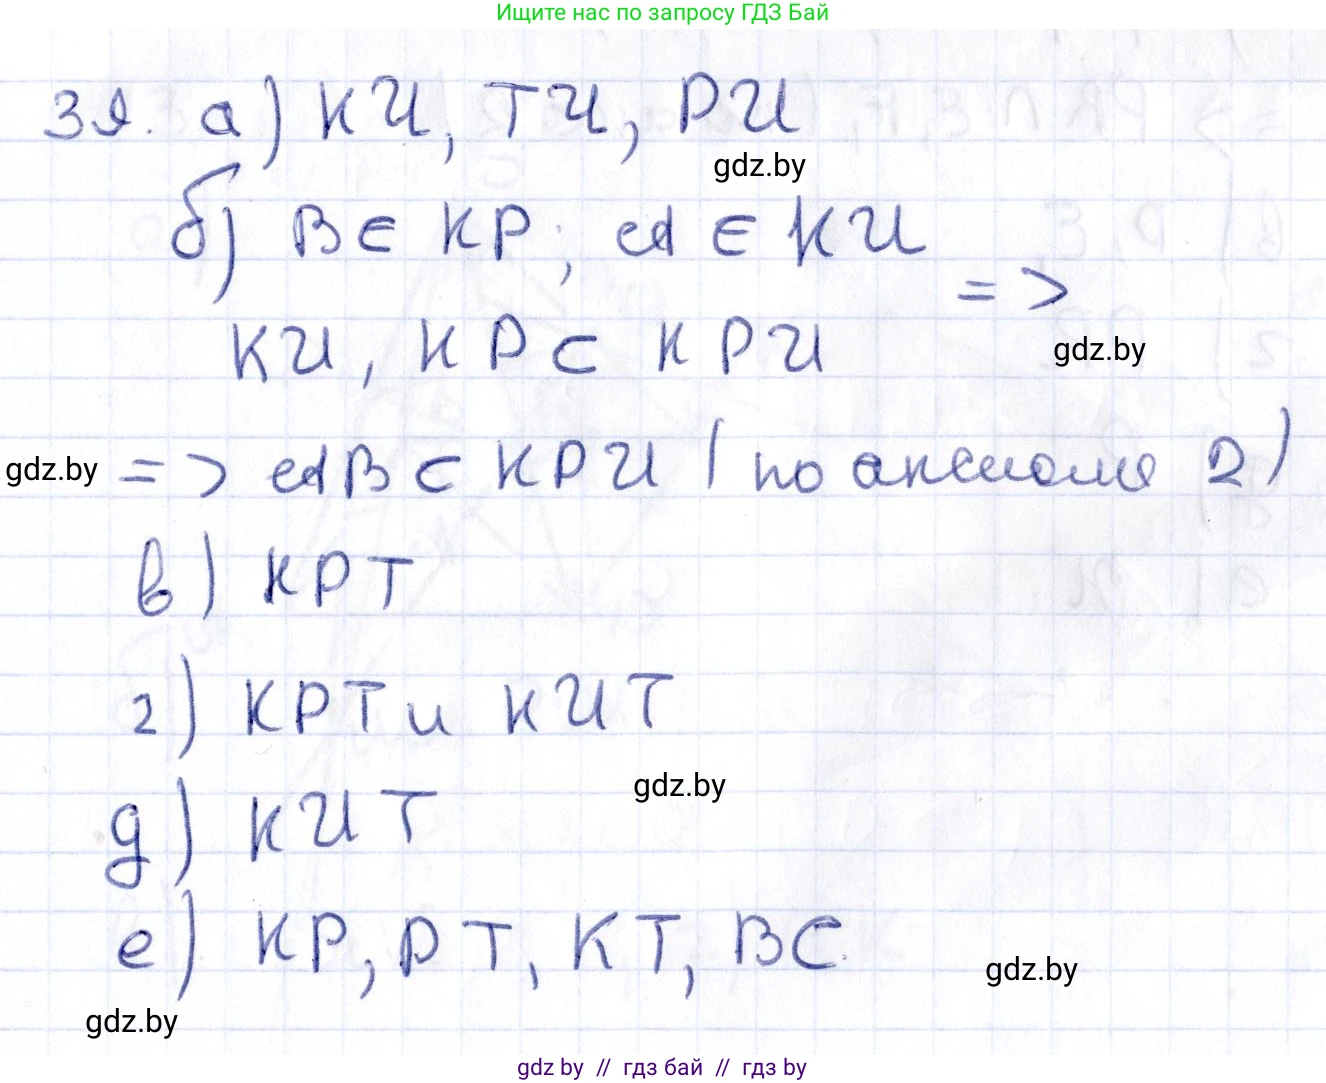 Ищите нас по запросу ГДЗ Бай
39. а) КИ, ТИ, РИ
gdz.by
б) В ∈ КР; А ∈ КИ
=>
КИ, КР ⊂ КРИ
gdz.by
gdz.by
=> АВ ⊂ КРИ (по аксиоме 2)
в) КРТ
г) КРТ и КИТ
gdz.by
д) КИТ
е) КР, РТ, КТ, ВС.
gdz.by
gdz.by
gdz by // гдз бай // гдз by